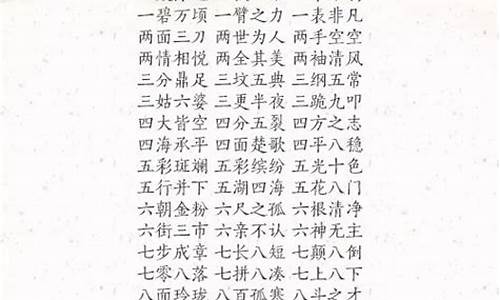 一碧万顷 一臂之力 一表非凡
两面三刀 两世为人 两手空空
两情相悦 两全其美 两袖清风
三分鼎足 三坟五典 三纲五常
三姑六婆 三更半夜 三跪九叩
四大皆空 四分五裂 四方之志
四海承平 四面楚歌 四平八稳
五彩斑斓 五彩缤纷 五光十色
五行并下 五湖四海 五花八门
六朝金粉 六尺之孤 六根清净
六街三市 六亲不认 六神无主
七步成章 七长八短 七颠八倒
七零八落 七拼八凑 七上八下
八面玲珑 八百孤寒 八斗之才